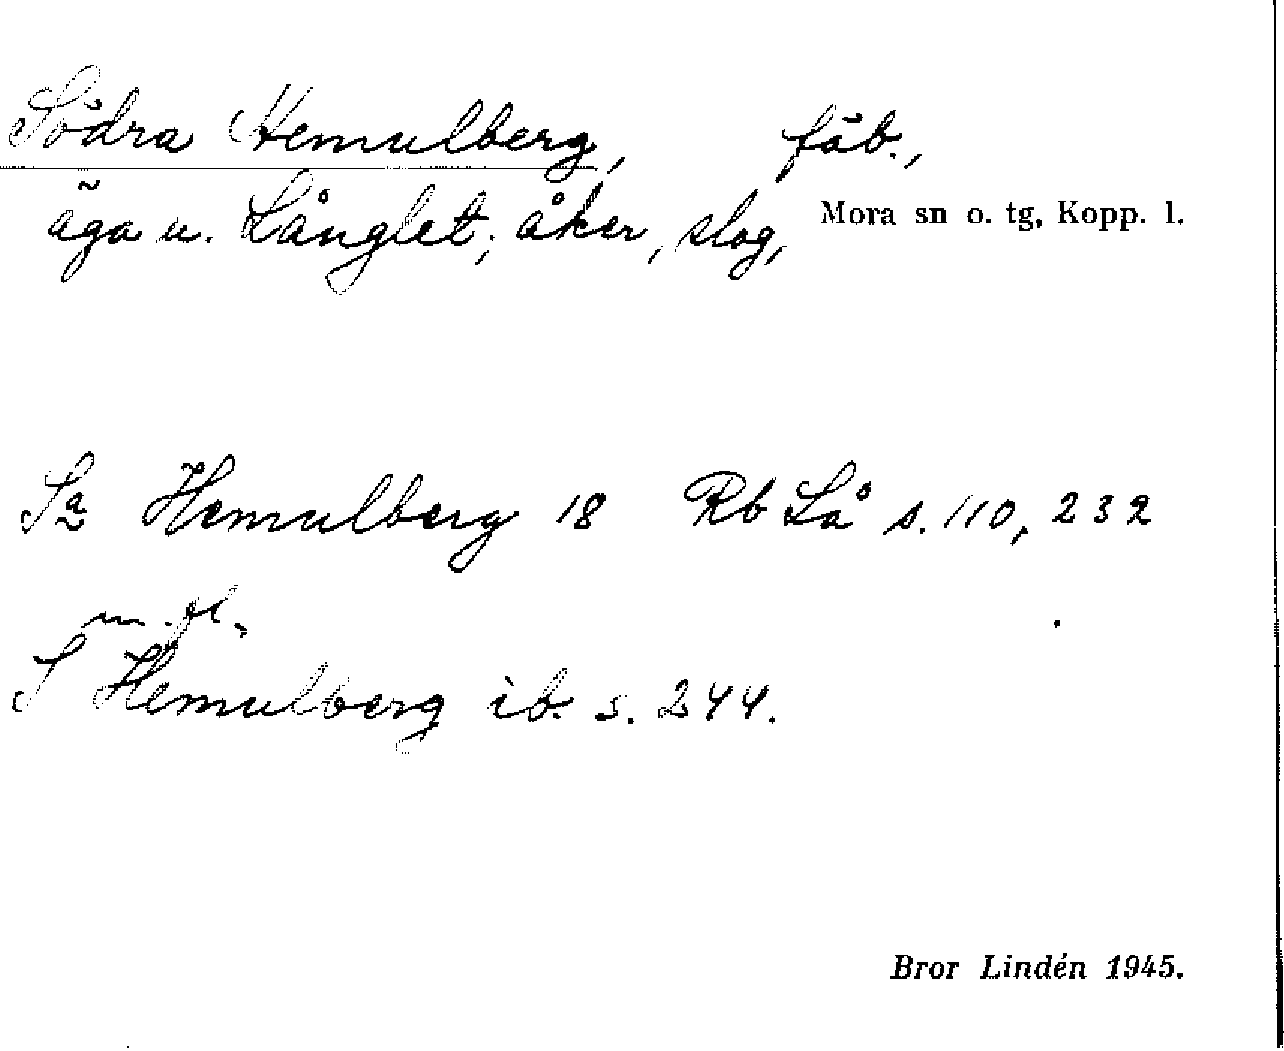 Södra Hemulberg, fäb.,
äga u. Långlet; åker, slog,
Mora sn o. tg, Kopp. l.
Sa Hemulberg 18 Rb Lå s. 110, 232
m. fl.
S Hemulberg ib. s. 244.
Bror Lindén 1945.